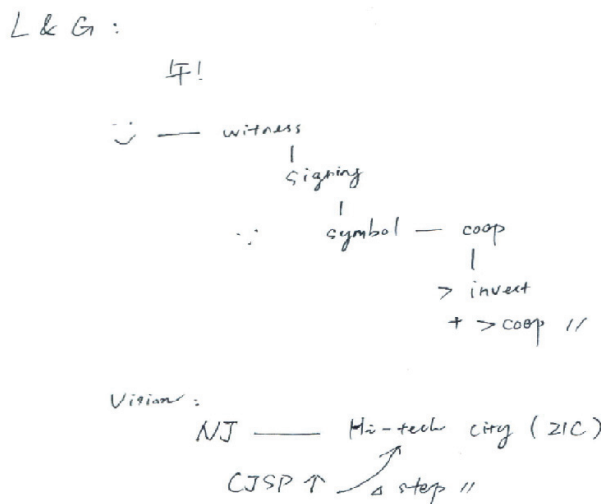 L & G :
午!
— witness
signing
symbol — coop
> invest
+ > coop //
Vision :
NJ — Hi-tech city (ZIC)
CJSP ↑ Δ step //